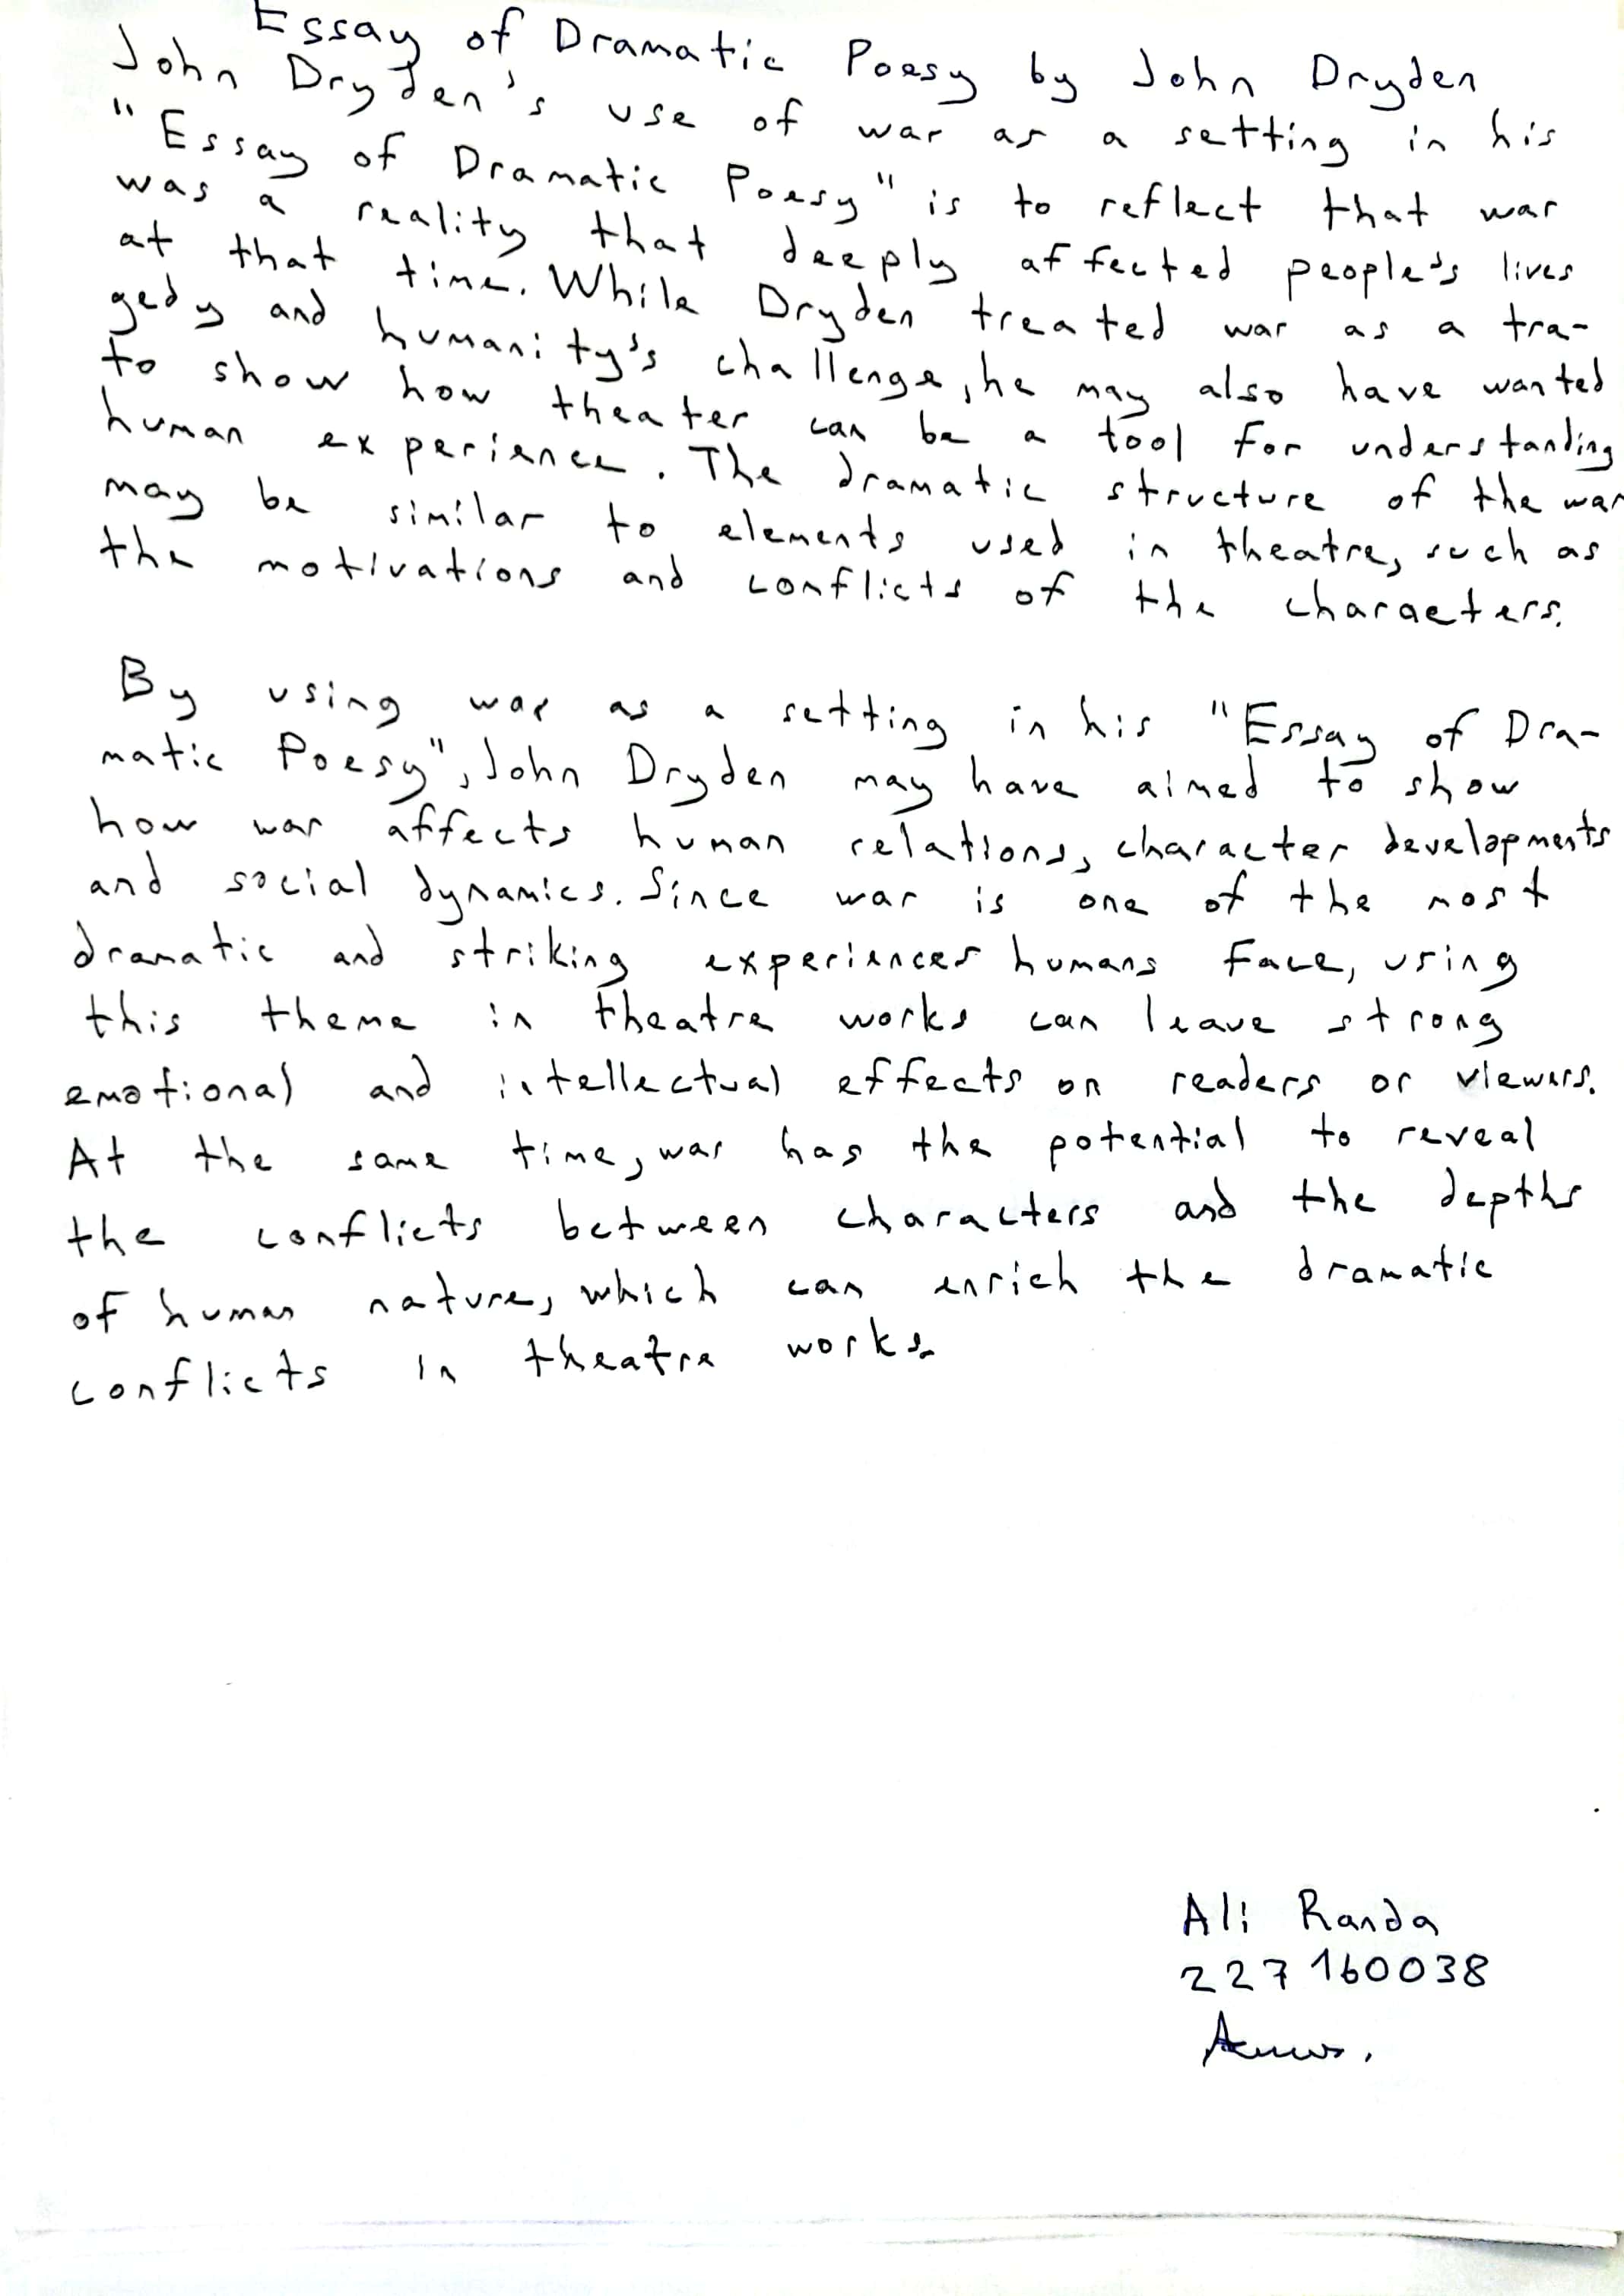 Essay of Dramatic Poesy by John Dryden
John Dryden's use of war as a setting in his
"Essay of Dramatic Poesy" is to reflect that war
was a reality that deeply affected people's lives
at that time. While Dryden treated war as a tra-
gedy and humanity's challenge, he may also have wanted
to show how theater can be a tool for understanding
human experience. The dramatic structure of the war
may be similar to elements used in theatre, such as
the motivations and conflicts of the characters.
By using war as a setting in his "Essay of Dra-
matic Poesy", John Dryden may have aimed to show
how war affects human relations, character developments
and social dynamics. Since war is one of the most
dramatic and striking experiences humans face, using
this theme in theatre works can leave strong
emotional and intellectual effects on readers or viewers.
At the same time, war has the potential to reveal
the conflicts between characters and the depths
of human nature, which can enrich the dramatic
conflicts in theatre works.
Ali Randa
227160038